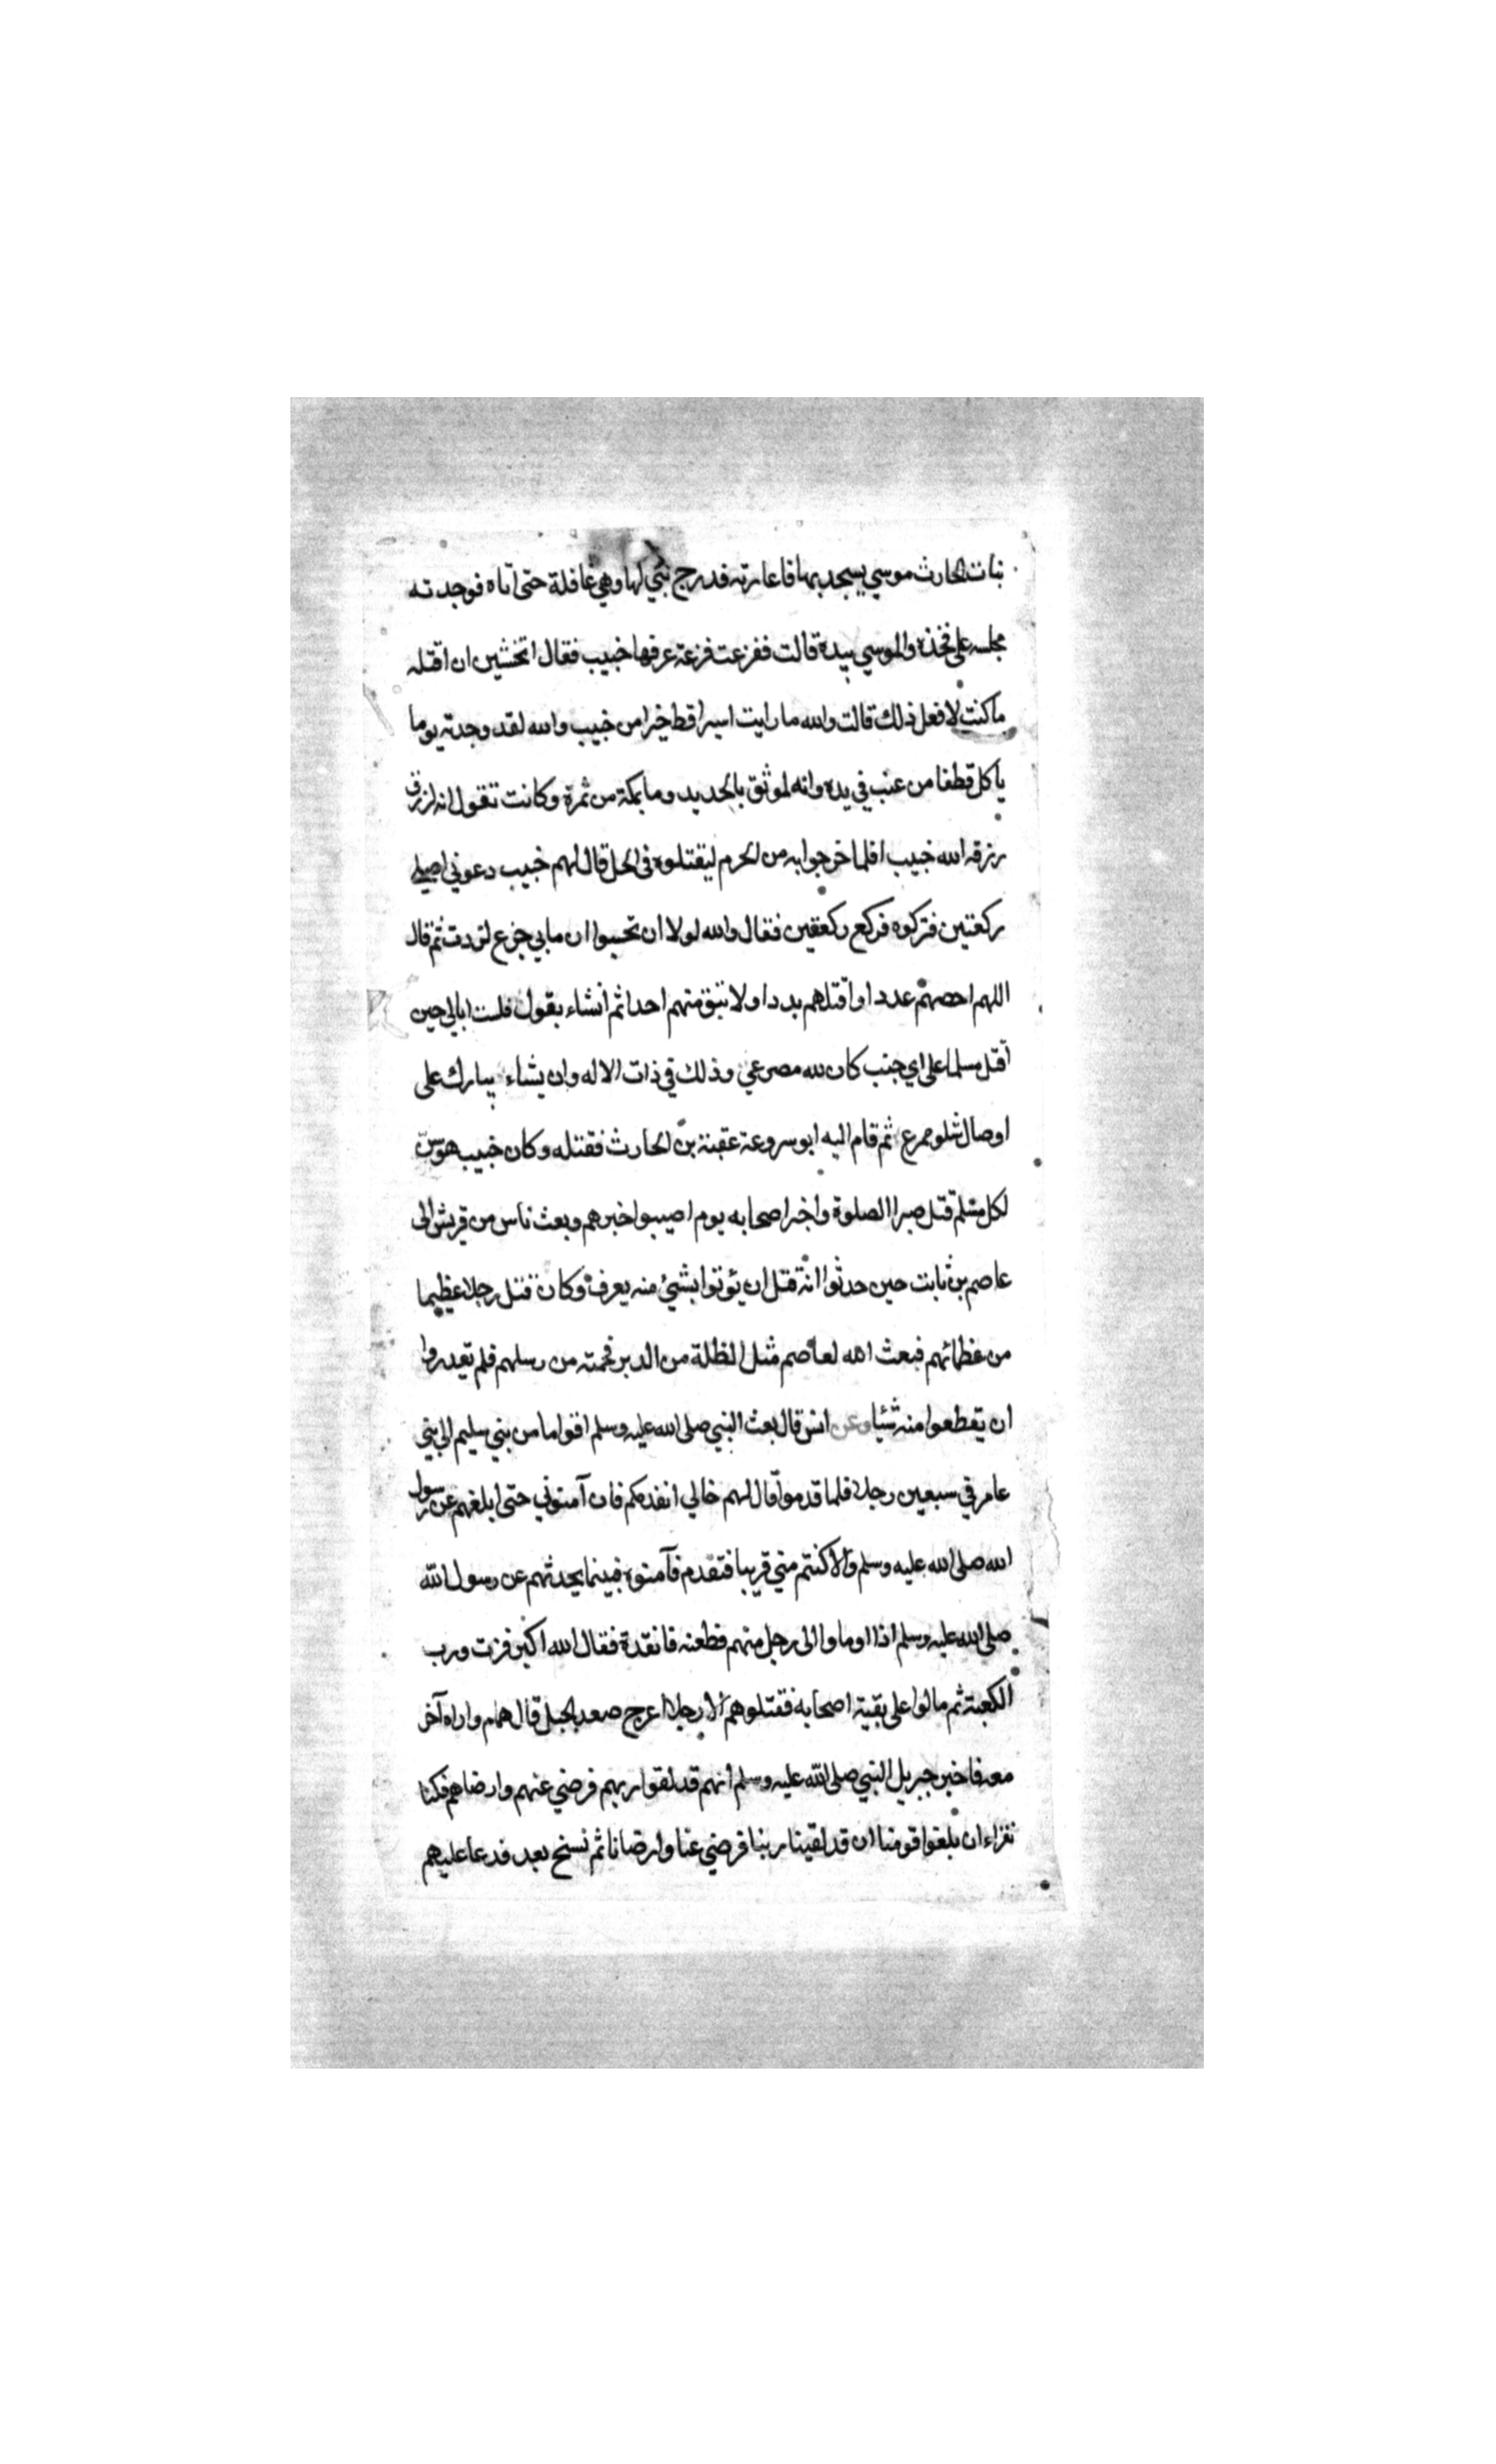 بنات الحارث موسي يسجد بها فاعارته فدرج بني لها وهي غافلة حتى اتاه فوجدته
مجلسه على فخذه والموسي بيده قالت ففزعت فزعة عرفها خبيب فقال اتخشين ان اقتله
ما كنت لافعل ذلك قالت والله ما رايت اسيرا قط خيرا من خبيب والله لقد وجدته يوما
ياكل قطفا من عنب في يده وانه لموثق بالحديد وما بمكة من ثمرة وكانت تقول انه لرزق
رزقه الله خبيب افلما خرجوا به من الحرم ليقتلوه في الحل قال لهم خبيب دعوني اصلي
ركعتين فتركوه فركع ركعتين فقال والله لولا ان تحسبوا ان ما بي جزع لزدت ثم قال
اللهم احصهم عددا واقتلهم بددا ولا تبق منهم احدا ثم انشاء يقول فلست ابالي حين
اقتل مسلما على اي جنب كان لله مصرعي وذلك في ذات الاله وان يشاء يبارك على
اوصال شلو ممزع ثم قام اليه ابو سروعة عقبة بن الحارث فقتله وكان خبيب هو سن
لكل مسلم قتل صبرا الصلوة واخبر اصحابه يوم اصيبوا خبرهم وبعث ناس من قريش الى
عاصم بن ثابت حين حدثوا انه قتل ان يؤتوا بشيئ منه يعرف وكان قتل رجلا عظيما
من عظمائهم فبعث الله لعاصم مثل الظلة من الدبر فحمته من رسلهم فلم تعدروا
ان يقطعوا منه شيئا وعن انس قال بعث النبي صلى الله عليه وسلم اقواما من بني سليم الى بني
عامر في سبعين رجلا فلما قدموا قال لهم خالي انفدمكم فان آمنوني حتى ابلغهم عن رسول
الله صلى الله عليه وسلم والا كنتم مني قريبا فتقدم فآمنوه فبينما يحدثهم عن رسول الله
صلى الله عليه وسلم اذا اوماوا الى رجل منهم فطعنه فانفده فقال الله اكبر فزت ورب
الكعبة ثم مالوا على بقية اصحابه فقتلوهم الا رجلا اعرج صعد الجبل قال همام واراه آخر
معه فاخبر جبريل النبي صلى الله عليه وسلم انهم قد لقوا ربهم فرضي عنهم وارضاهم فكنا
نقراء ان بلغوا قومنا ان قد لقينا ربنا فرضي عنا وارضانا ثم نسخ بعد فدعا عليهم